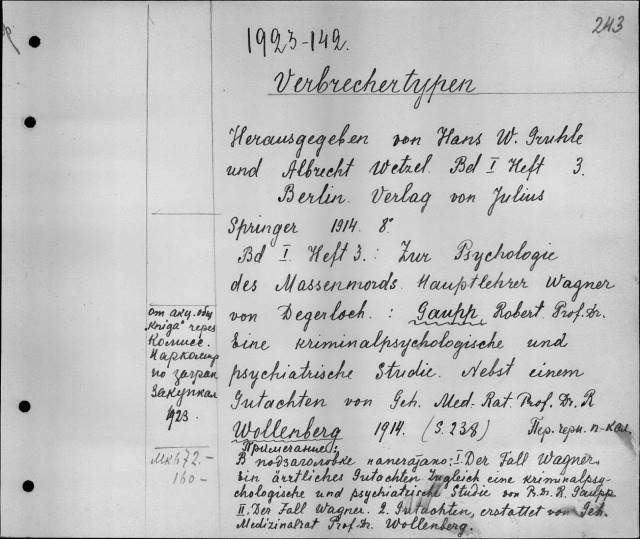 243
1923-142.
Verbrechertypen
Herausgegeben von Hans W. Gruhle
und Albrecht Wetzel. Bd I Heft 3.
Berlin. Verlag von Julius
Springer 1914. 8°
Bd I. Heft 3.: Zur Psychologie
des Massenmords. Hauptlehrer Wagner
von Degerloch. : Gaupp, Robert. Prof. Dr.
Eine kriminalpsychologische und
psychiatrische Studie. Nebst einem
Gutachten von Geh. Med.-Rat. Prof. Dr. R
Wollenberg 1914. (S. 238) Пер. черн. п-кал.
от акц. общ
"Kniga" через
Комисс.
Наркомпр
по загран
закупкам
1923.
Mk 672.-
160-
Примечание:
В подзаголовке напечатано: I. Der Fall Wagner.
Ein ärztliches Gutachten Zugleich eine kriminalpsy-
chologische und psychiatrische Studie von R. Dr. R. Gaupp
II. Der Fall Wagner. 2. Gutachten, erstattet von Geh.
Medizinalrat Prof. Dr. Wollenberg.